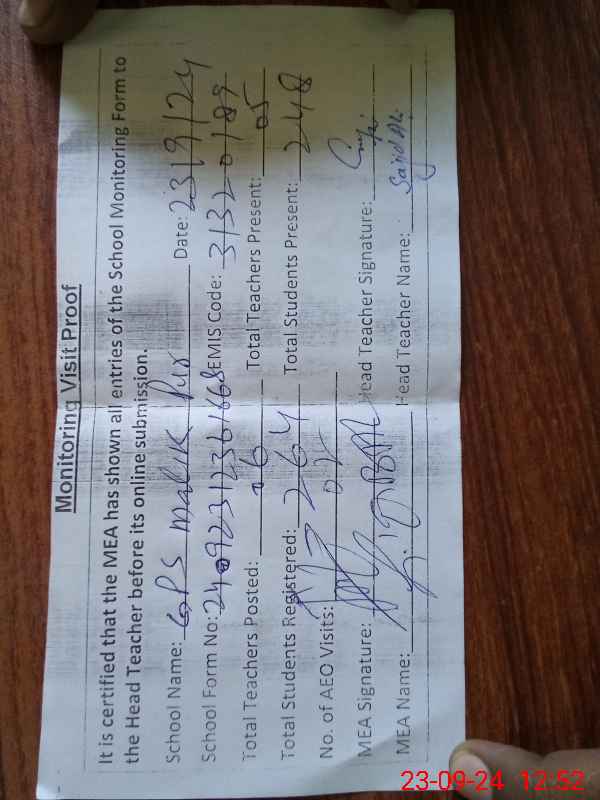 Monitoring Visit Proof
It is certified that the MEA has shown all entries of the School Monitoring Form to
the Head Teacher before its online submission.
School Name: GPS malik Pur Date: 23/9/24
School Form No: EMIS Code: 31320189
Total Teachers Posted: 06 Total Teachers Present: 05
Total Students Registered: 264 Total Students Present: 248
No. of AEO Visits: 02
MEA Signature: Head Teacher Signature:
MEA Name: Head Teacher Name: Sajid Ali
23-09-24 12:52